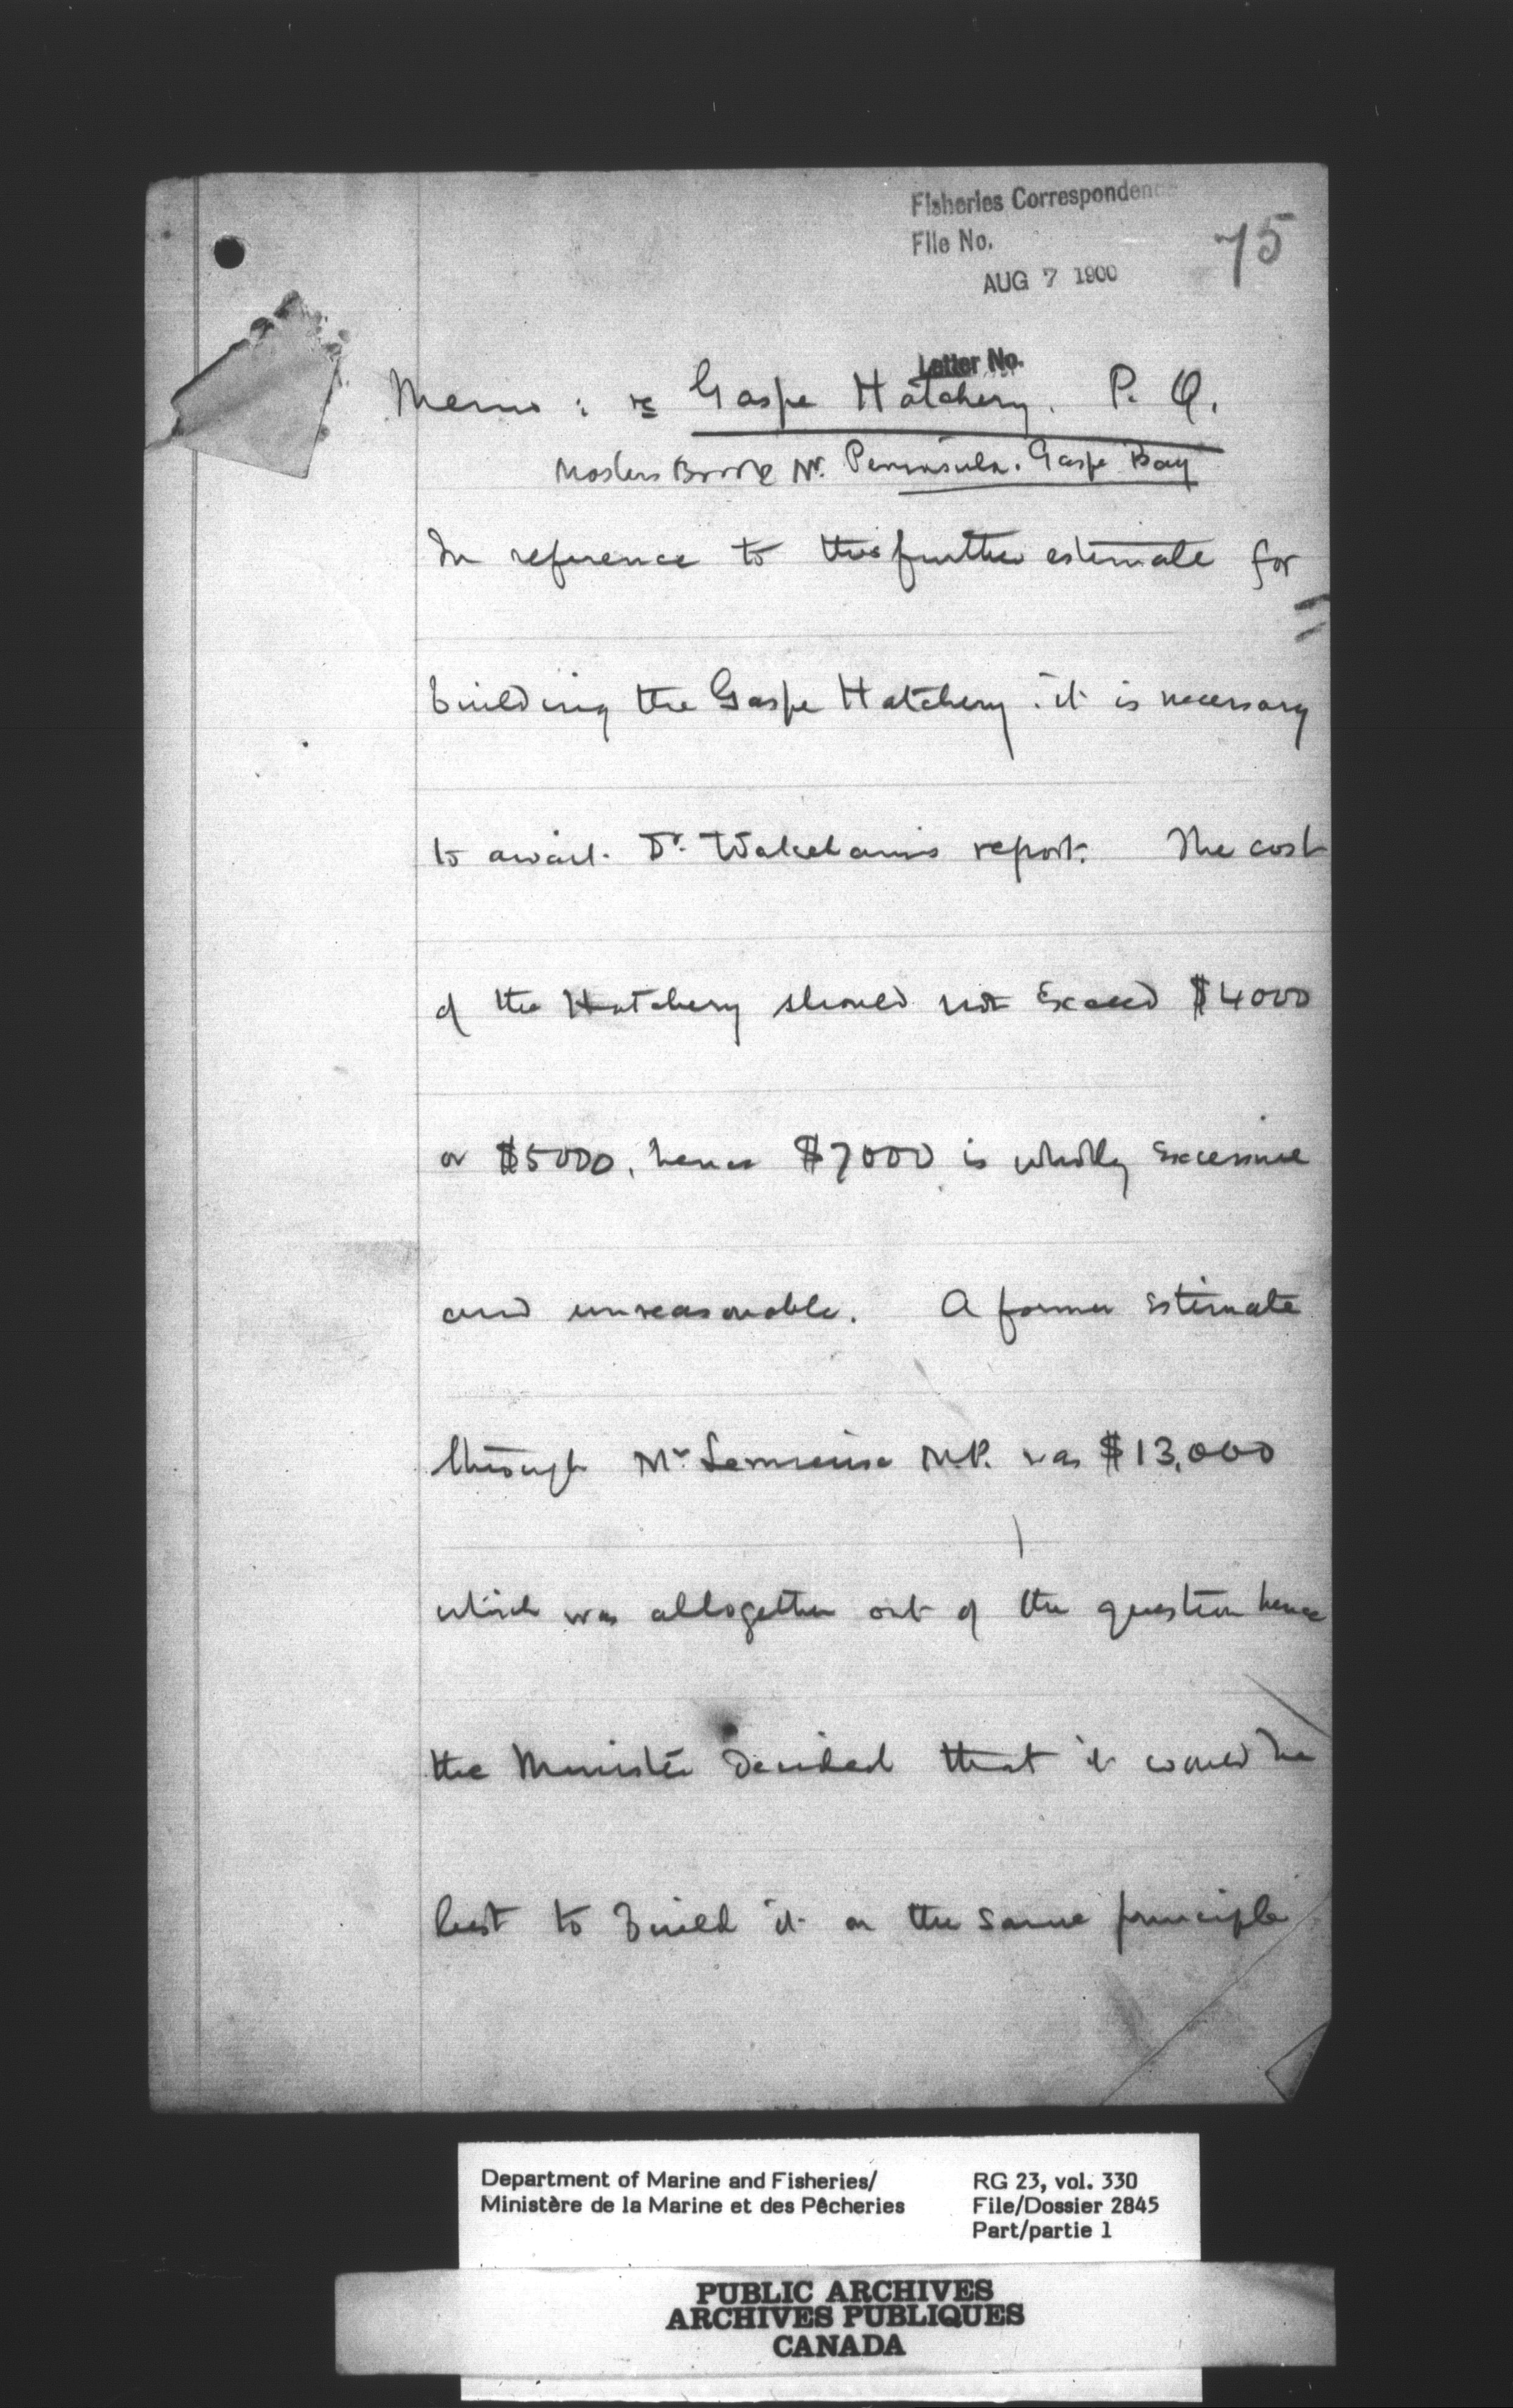 Fisheries Correspondence
File No.
75
AUG 7 1900
Letter No.
Memo: re Gaspe Hatchery. P. Q.
Brook Nr. Peninsula. Gaspe Bay
In reference to this further estimate for
building the Gaspe Hatchery. it is necessary
to await Dr. Wakeham's report. The cost
of the Hatchery should not exceed $4000
or $5000, hence $7000 is wholly excessive
and unreasonable. A former estimate
through Mr Lemieux M.P. was $13,000
which was altogether out of the question hence
the Minister decided that it would be
best to build it on the same principle
Department of Marine and Fisheries/
Ministère de la Marine et des Pêcheries
RG 23, vol. 330
File/Dossier 2845
Part/partie 1
PUBLIC ARCHIVES
ARCHIVES PUBLIQUES
CANADA